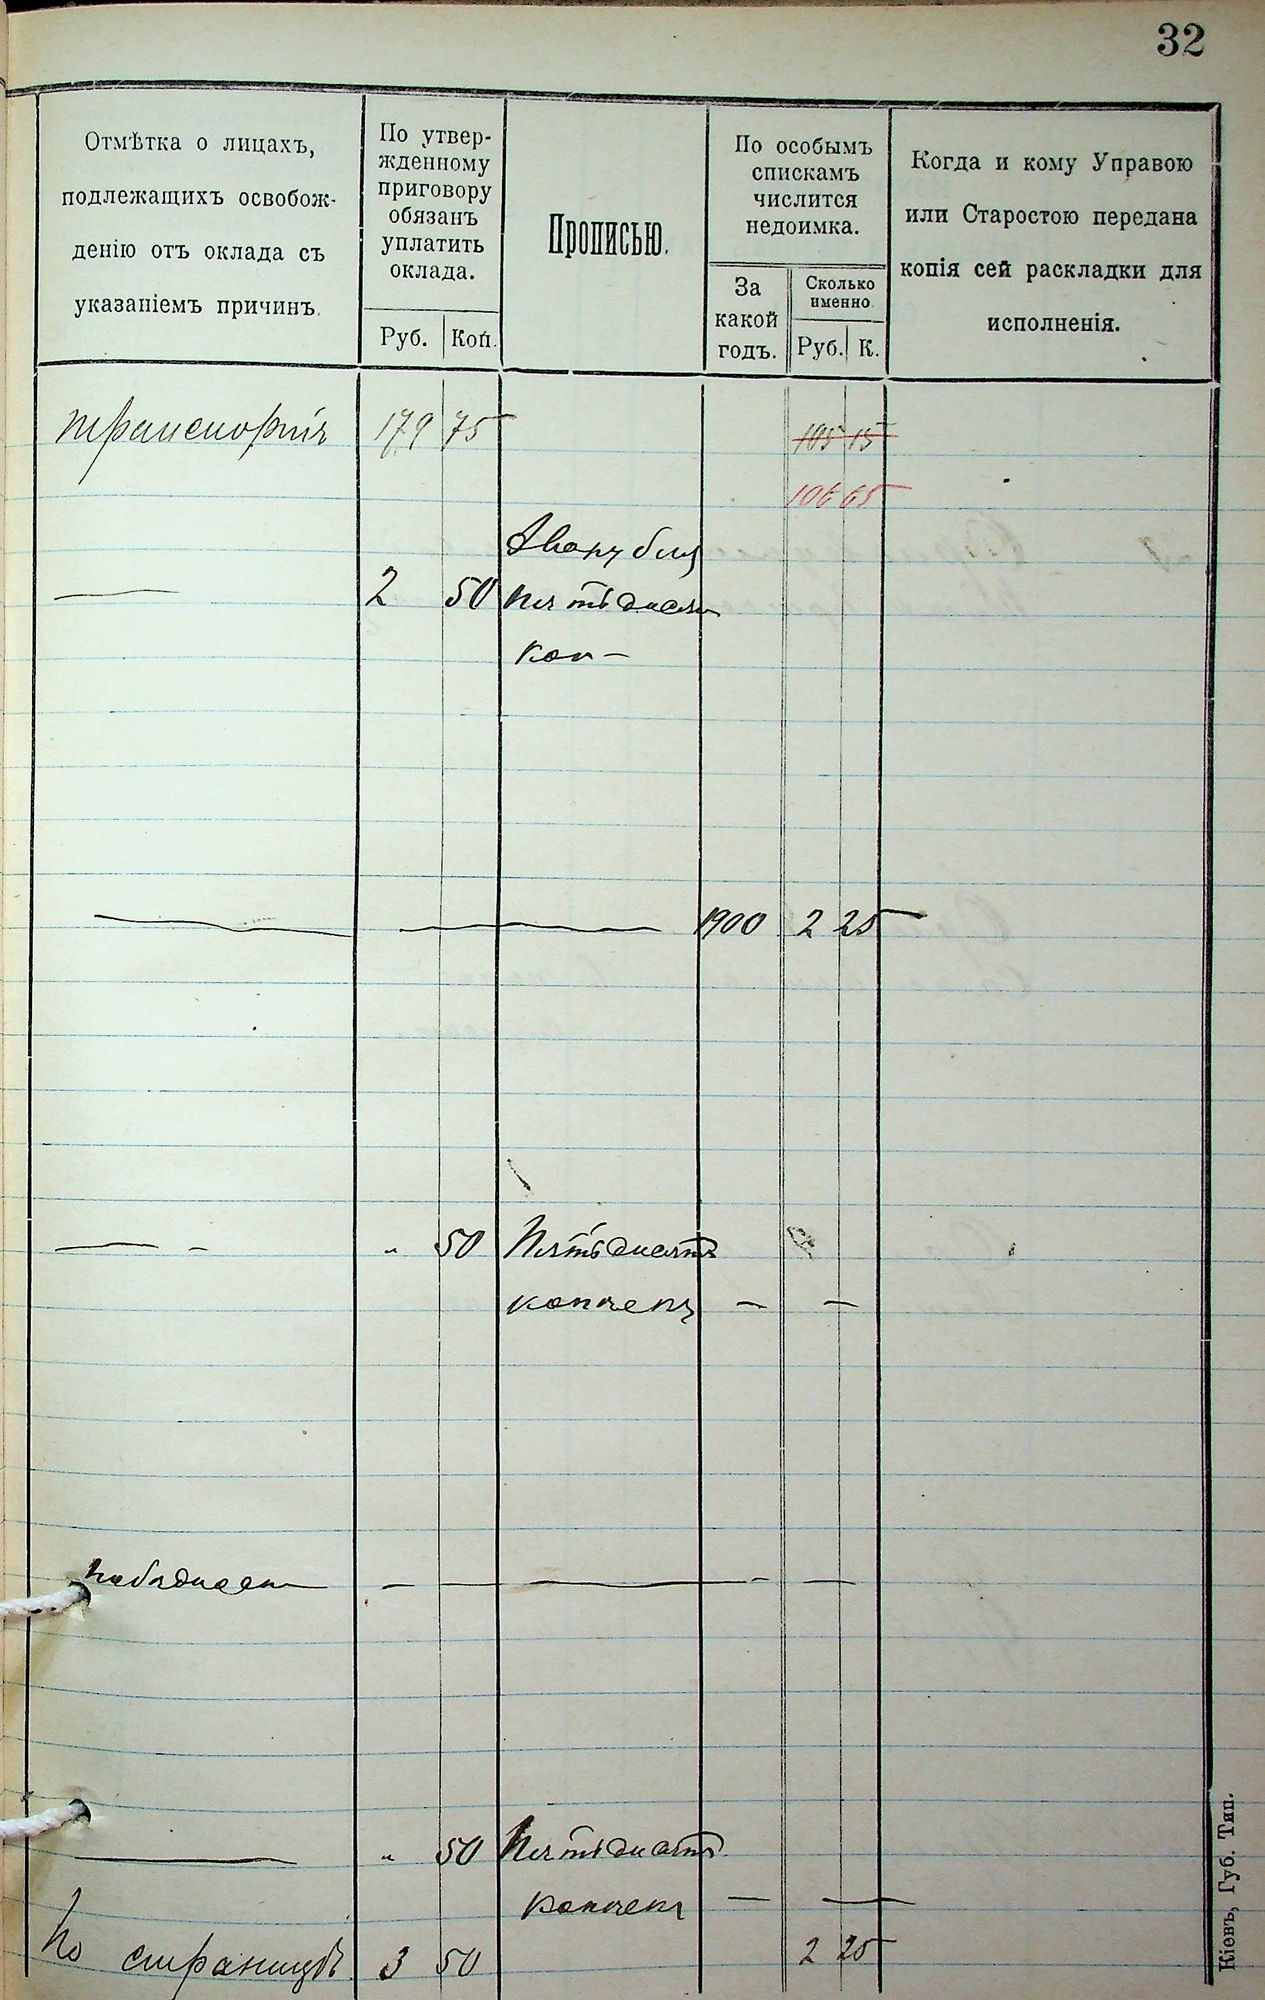 32
Отмѣтка о лицахъ,
подлежащихъ освобож-
денію отъ оклада съ
указаніемъ причинъ.
По утвер-
жденному
приговору
обязанъ
уплатить
оклада.
Руб. Коп.
Прописью.
По особымъ
спискамъ
числится
недоимка.
За
какой
годъ.
Сколько
именно
Руб. К.
Когда и кому Управою
или Старостою передана
копія сей раскладки для
исполненія.
транспортъ 179 75 105 15
106 65
Два руб
2 50 пятьдесят
коп
1900 2 25
" 50 Пятьдесятъ
копѣекъ
" 50 Пятьдесятъ
копѣекъ
По страницѣ 3 50 2 25
Кіевъ, Губ. Тип.